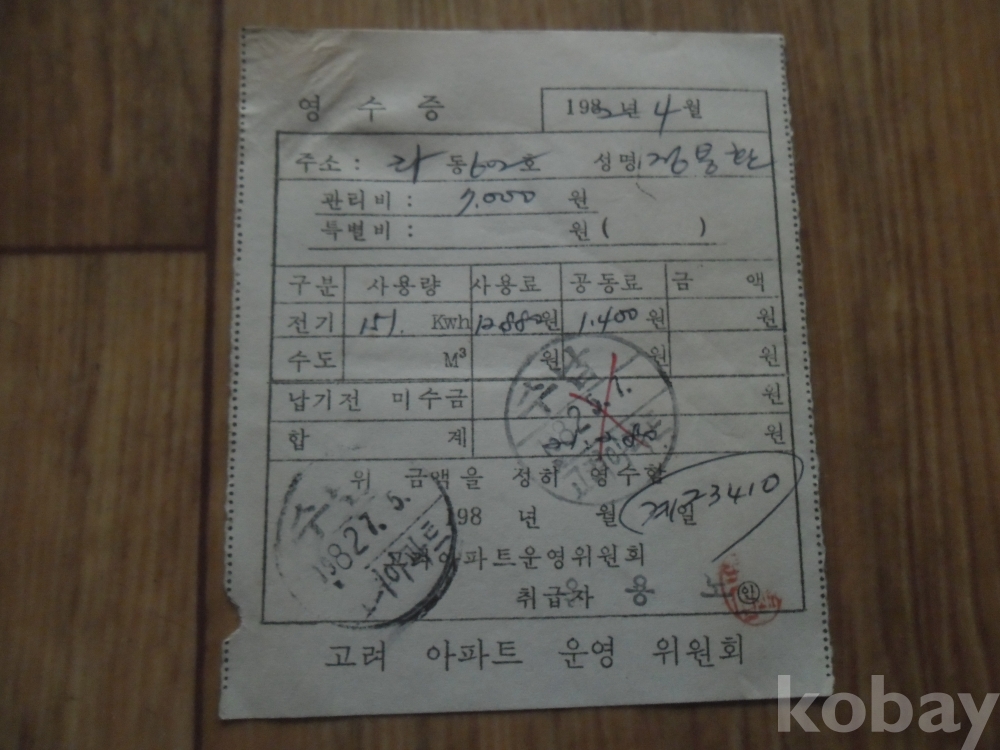 영 수 증
1982년 4월
주소 : 라 동 602호 성명
관리비 : 7.000 원
특별비 : 원 ( )
구분 사용량 사용료 공동료 금 액
전기 151. Kwh 12880원 1.400원 원
수도 M³ 원 원 원
납기전 미수금 원
합 계 원
위 금액을 정히 영수함
198 년 월 일
아파트운영위원회
취급자 용
고려 아파트 운영 위원회
kobay